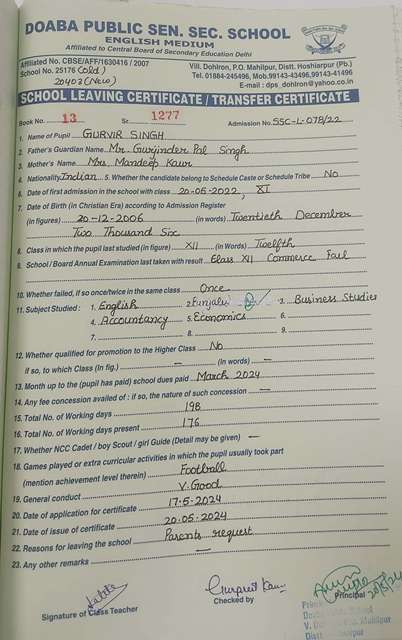 DOABA PUBLIC SEN. SEC. SCHOOL
ENGLISH MEDIUM
Affiliated to Central Board of Secondary Education Delhi
Affiliated No. CBSE/AFF/1630416 / 2007
School No. 25176 (Old)
20403 (New)
Vill. Dohlron, P.O. Mahilpur, Distt. Hoshiarpur (Pb.)
Tel. 01884-245496, Mob.99143-43496,99143-41496
E-mail : dps_dohlron@yahoo.co.in
SCHOOL LEAVING CERTIFICATE / TRANSFER CERTIFICATE
Book No. 13 Sr 1277 Admission No. SSC-L-078/22
1. Name of Pupil GURVIR SINGH
2. Father's Guardian Name Mr. Gurjinder Pal Singh
3. Mother's Name Mrs. Mandeep Kaur
4. Nationality Indian 5. Whether the candidate belong to Schedule Caste or Schedule Tribe No
6. Date of first admission in the school with class 20-05-2022, XI
7. Date of Birth (in Christian Era) according to Admission Register
(in figures) 20-12-2006 (in words) Twentieth December
Two Thousand Six
8. Class in which the pupil last studied (in figure) XII (in Words) Twelfth
9. School / Board Annual Examination last taken with result Class XII Commerce Fail
10. Whether failed, if so once/twice in the same class Once
11. Subject Studied : 1. English 2. Punjabi 3. Business Studies
4. Accountancy 5. Economics 6.
7. 8. 9.
12. Whether qualified for promotion to the Higher Class No
if so, to which Class (In fig.) — (in words) —
13. Month up to the (pupil has paid) school dues paid March 2024
14. Any fee concession availed of : if so, the nature of such concession —
15. Total No. of Working days 198
16. Total No. of Working days present 176
17. Whether NCC Cadet / boy Scout / girl Guide (Detail may be given) —
18. Games played or extra curricular activities in which the pupil usually took part
(mention achievement level therein) Football
19. General conduct V. Good
20. Date of application for certificate 17-5-2024
21. Date of issue of certificate 20-05-2024
22. Reasons of leaving the school Parents request
23. Any other remarks —
Signature of Class Teacher
Gurpreet Kaur
Checked by
Principal 20/5/24